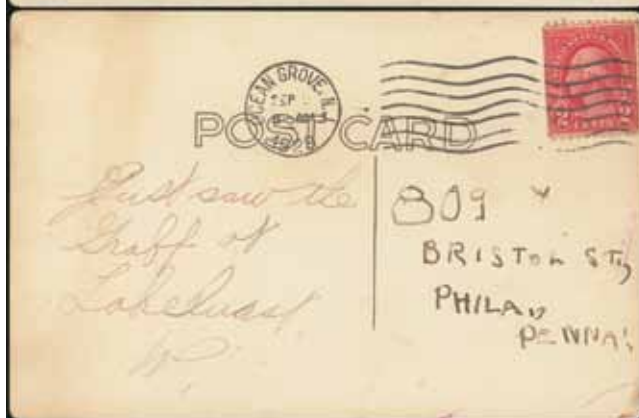 OCEAN GROVE, N.
SEP
1929
POST CARD
2 CENTS 2
Just saw the
Graff at
Lakehurst
809
BRISTOL ST,
PHILA,
PENNA,